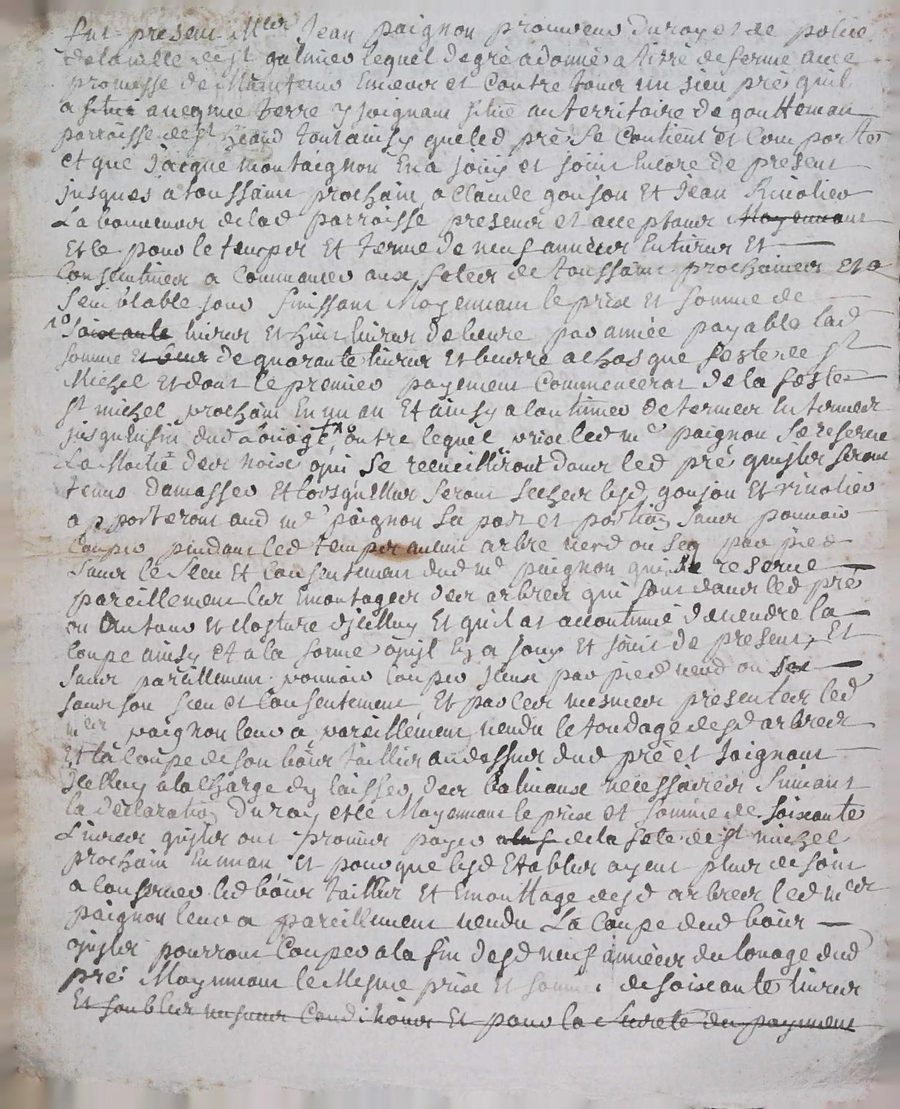 fut present Mter Jean paignon procureur du roy et de police
de la ville de st galmier lequel de gré a donné a titre de ferme avec
promesse de maintenir Envers et Contre tous un sien pré quil
a situé avecque terre y joignant situé au territoire de gouttenan
parroisse de st tout ainsy que led pré Se Contient et Comporte
et que Jacque montaignon En a jouy et jouit Encore de present
jusques a toussaint prochain a Claude goujon Et Jean Rivolier
Laboureurs de lad parroisse presents et acceptants Moyennant
Et ce pour le temps Et terme de neuf années Entieres Et
Consecutives a Commancer aux festes de toussaint prochaines Et a
Semblable jour finissant Moyennant le prix Et somme de
soixante livres Et huit livres de beurre par année payable lad
somme Et beur de quarante livres Et beurre a chasque feste de st
Michel Et dont le premier payement Commencerat de la feste
st michel prochain En un an Et ainsy a Continuer de termes En termes
jusqu En fin dud louage outre lequel prix led mr paignon Se reserve
La Moitié des noix qui Se recueilliront dans led pré quils seront
tenus damasser Et lorsquelles seront seches lesd goujon Et rivolier
apporteront aud mr paignon sa part et portion sans pouvoir
Couper pendant led temps aucun arbre verd ou seq par pied
sans le sceu Et Consentement dud mr paignon qui se reserve
pareillement les Emontages des arbres qui sont dans led pré
ou Autour Et closture dicelluy Et quil at accoutumé de vendre la
Coupe ainsy Et a la forme quil En a jouy Et jouit de present, Et
sans pareillement pouvoir Couper par pied verd ou sec
sans son sceu et Consentement Et par ces mesmes presentes led
mter paignon leur a pareillement vendu le tondage desd arbres
Et la Coupe de son bois taillis au dessus dud pré et joignant
Icelluy a la charge dy laisser des balivaux necessaires suivant
la declaration du roy et ce Moyennant le prix et somme de soixante
Livres quils ont promis payer de la fete de st michel
prochain En un an Et pour que lesd Establis ayent plus de soin
a Conserver led bois taillis Et Emouttage desd arbres led mter
paignon leur a pareillement vendu La Coupe dud bois
quils pourront Couper a la fin desd neuf années du louage dud
pré Moyennant le Mesme prix et somme de soixante livres
Et soubs les mesmes Conditions Et pour la surete du payement